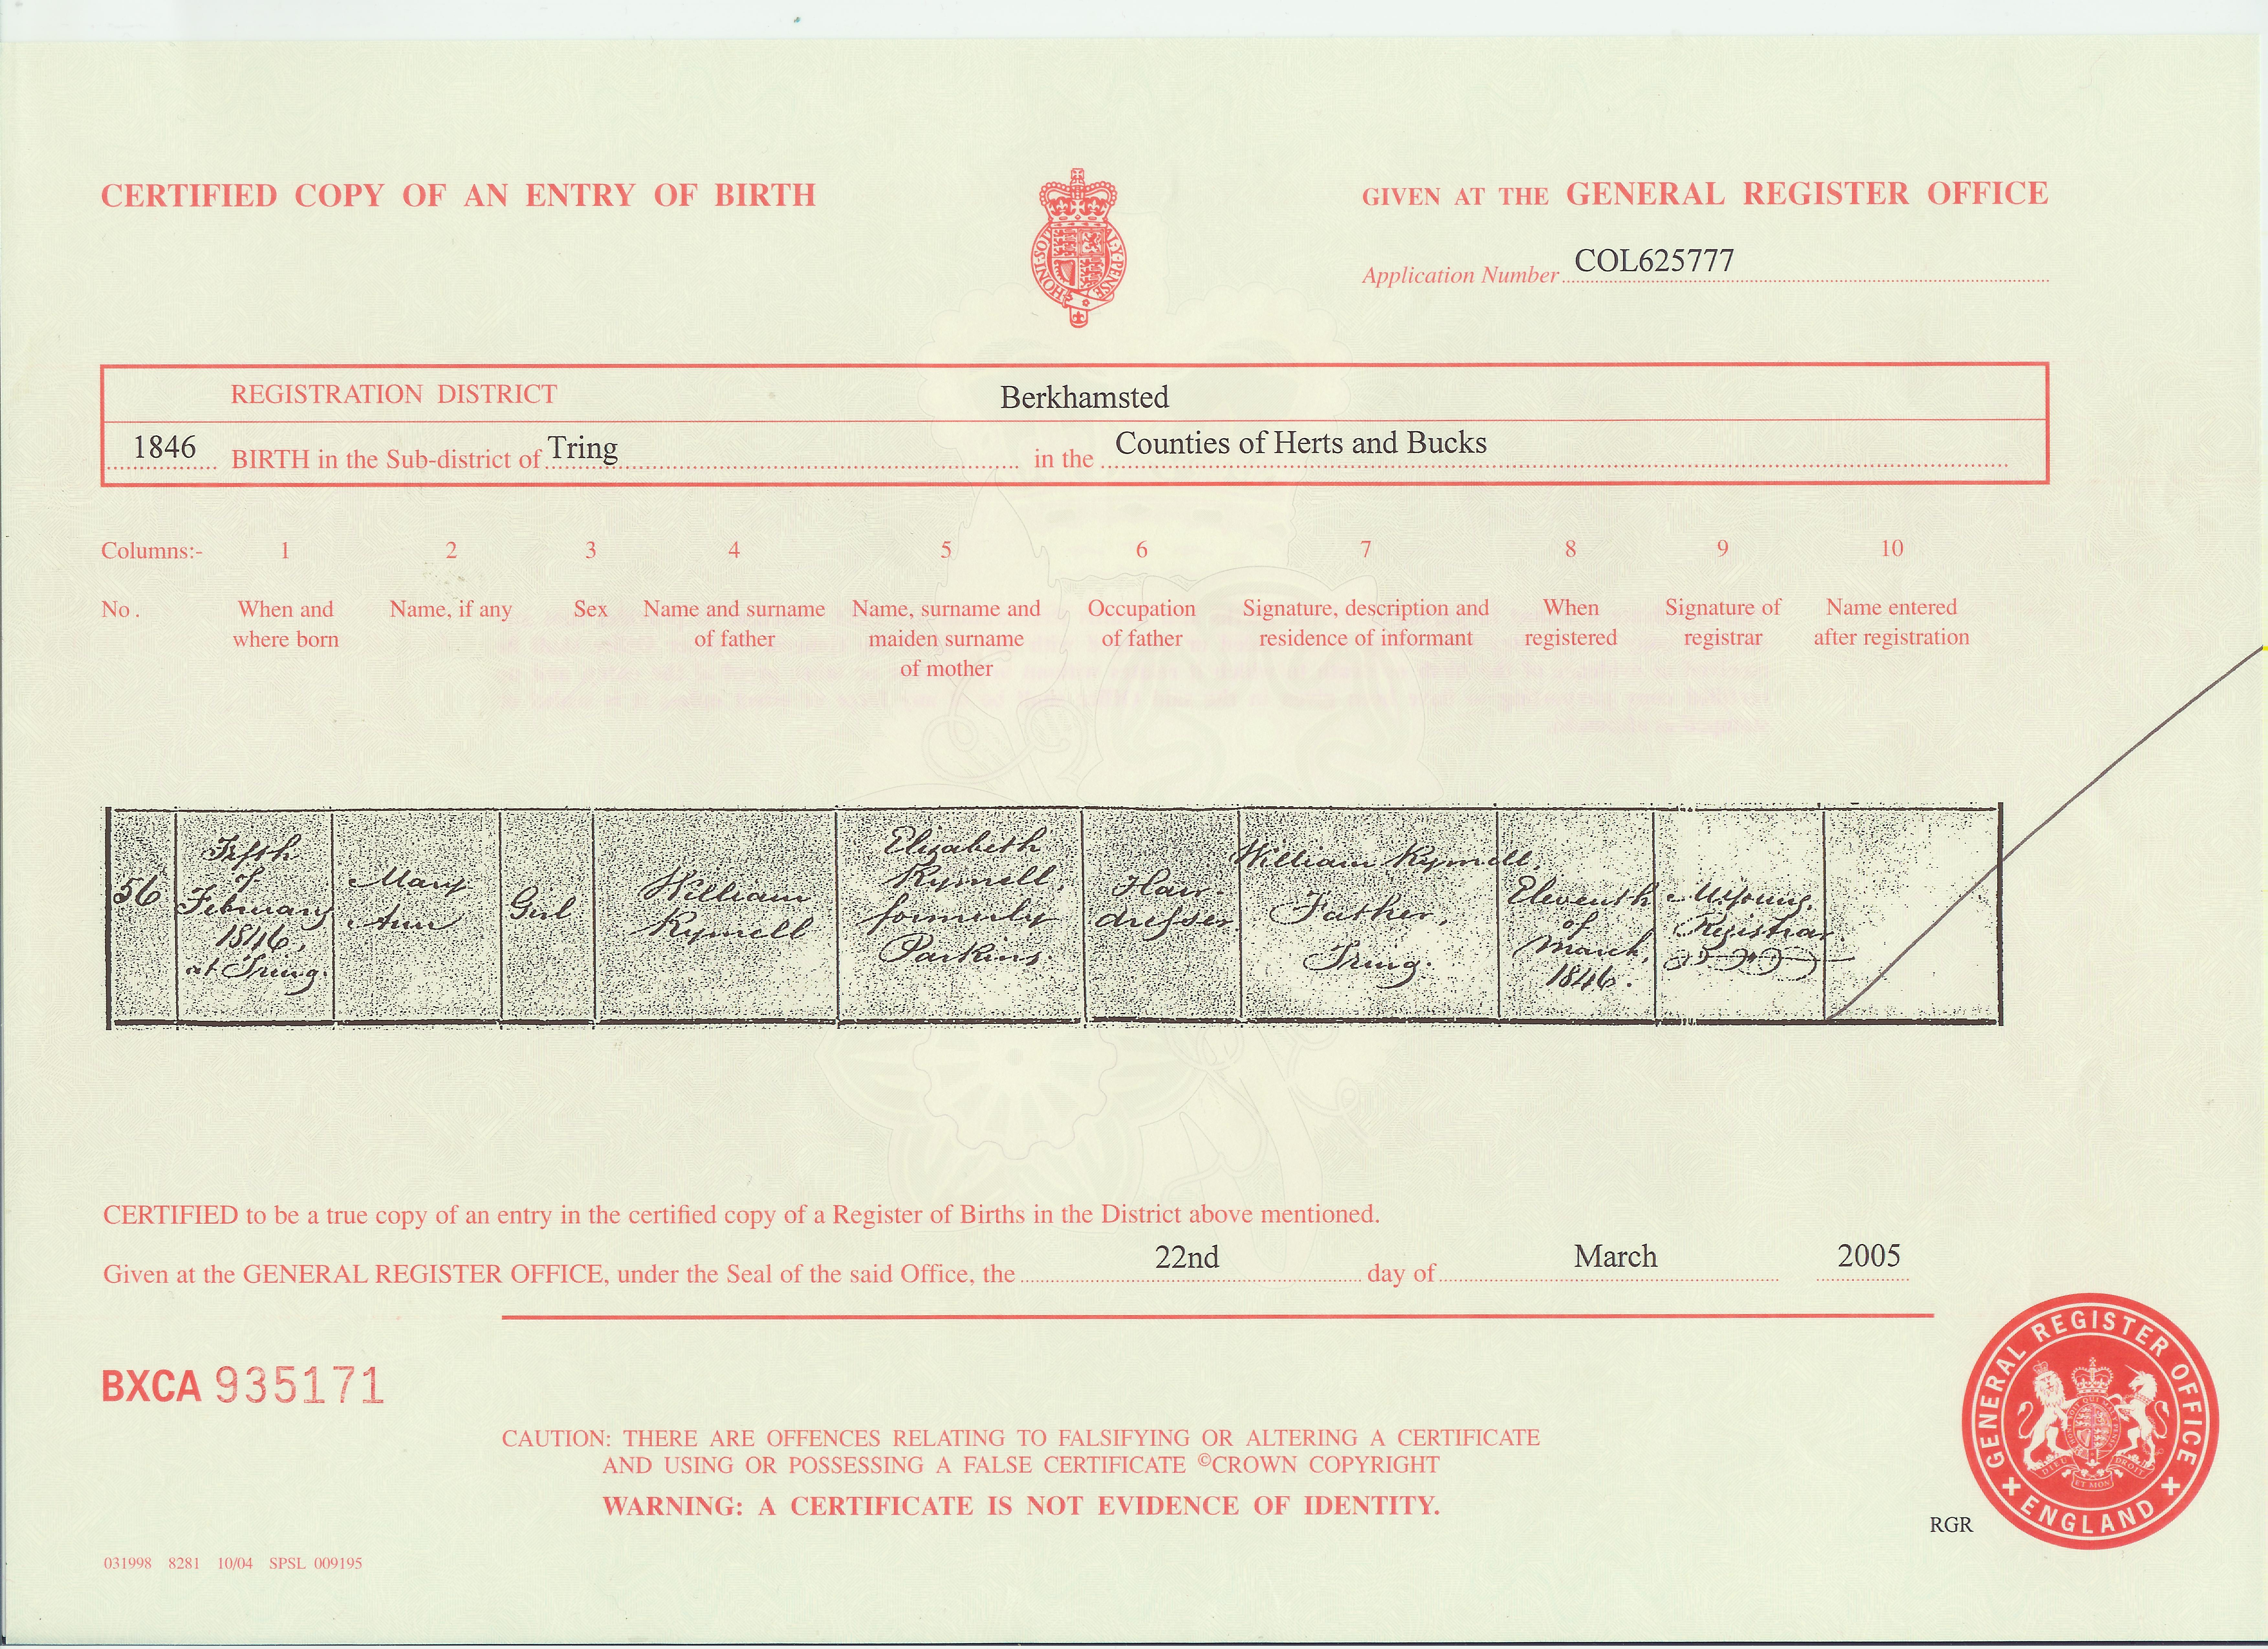 CERTIFIED COPY OF AN ENTRY OF BIRTH
GIVEN AT THE GENERAL REGISTER OFFICE
HONI·SOI AL·Y·PENSE
Application Number COL625777
REGISTRATION DISTRICT Berkhamsted
1846 BIRTH in the Sub-district of Tring in the Counties of Herts and Bucks
Columns:- 1 2 3 4 5 6 7 8 9 10
No. When and where born Name, if any Sex Name and surname of father Name, surname and maiden surname of mother Occupation of father Signature, description and residence of informant When registered Signature of registrar Name entered after registration
56
Fifth
of
February
1846,
at Tring.
Mary
Ann
Girl
William
Rymell
Elizabeth
Rymell,
formerly
Parkins.
Hair-
dresser.
William Rymell,
Father,
Tring.
Eleventh
of
March,
1846.
Registrar
CERTIFIED to be a true copy of an entry in the certified copy of a Register of Births in the District above mentioned.
Given at the GENERAL REGISTER OFFICE, under the Seal of the said Office, the 22nd day of March 2005
BXCA 935171
CAUTION: THERE ARE OFFENCES RELATING TO FALSIFYING OR ALTERING A CERTIFICATE
AND USING OR POSSESSING A FALSE CERTIFICATE ©CROWN COPYRIGHT
WARNING: A CERTIFICATE IS NOT EVIDENCE OF IDENTITY.
GENERAL REGISTER OFFICE
ENGLAND
DIEU ET MON DROIT
RGR
031998 8281 10/04 SPSL 009195